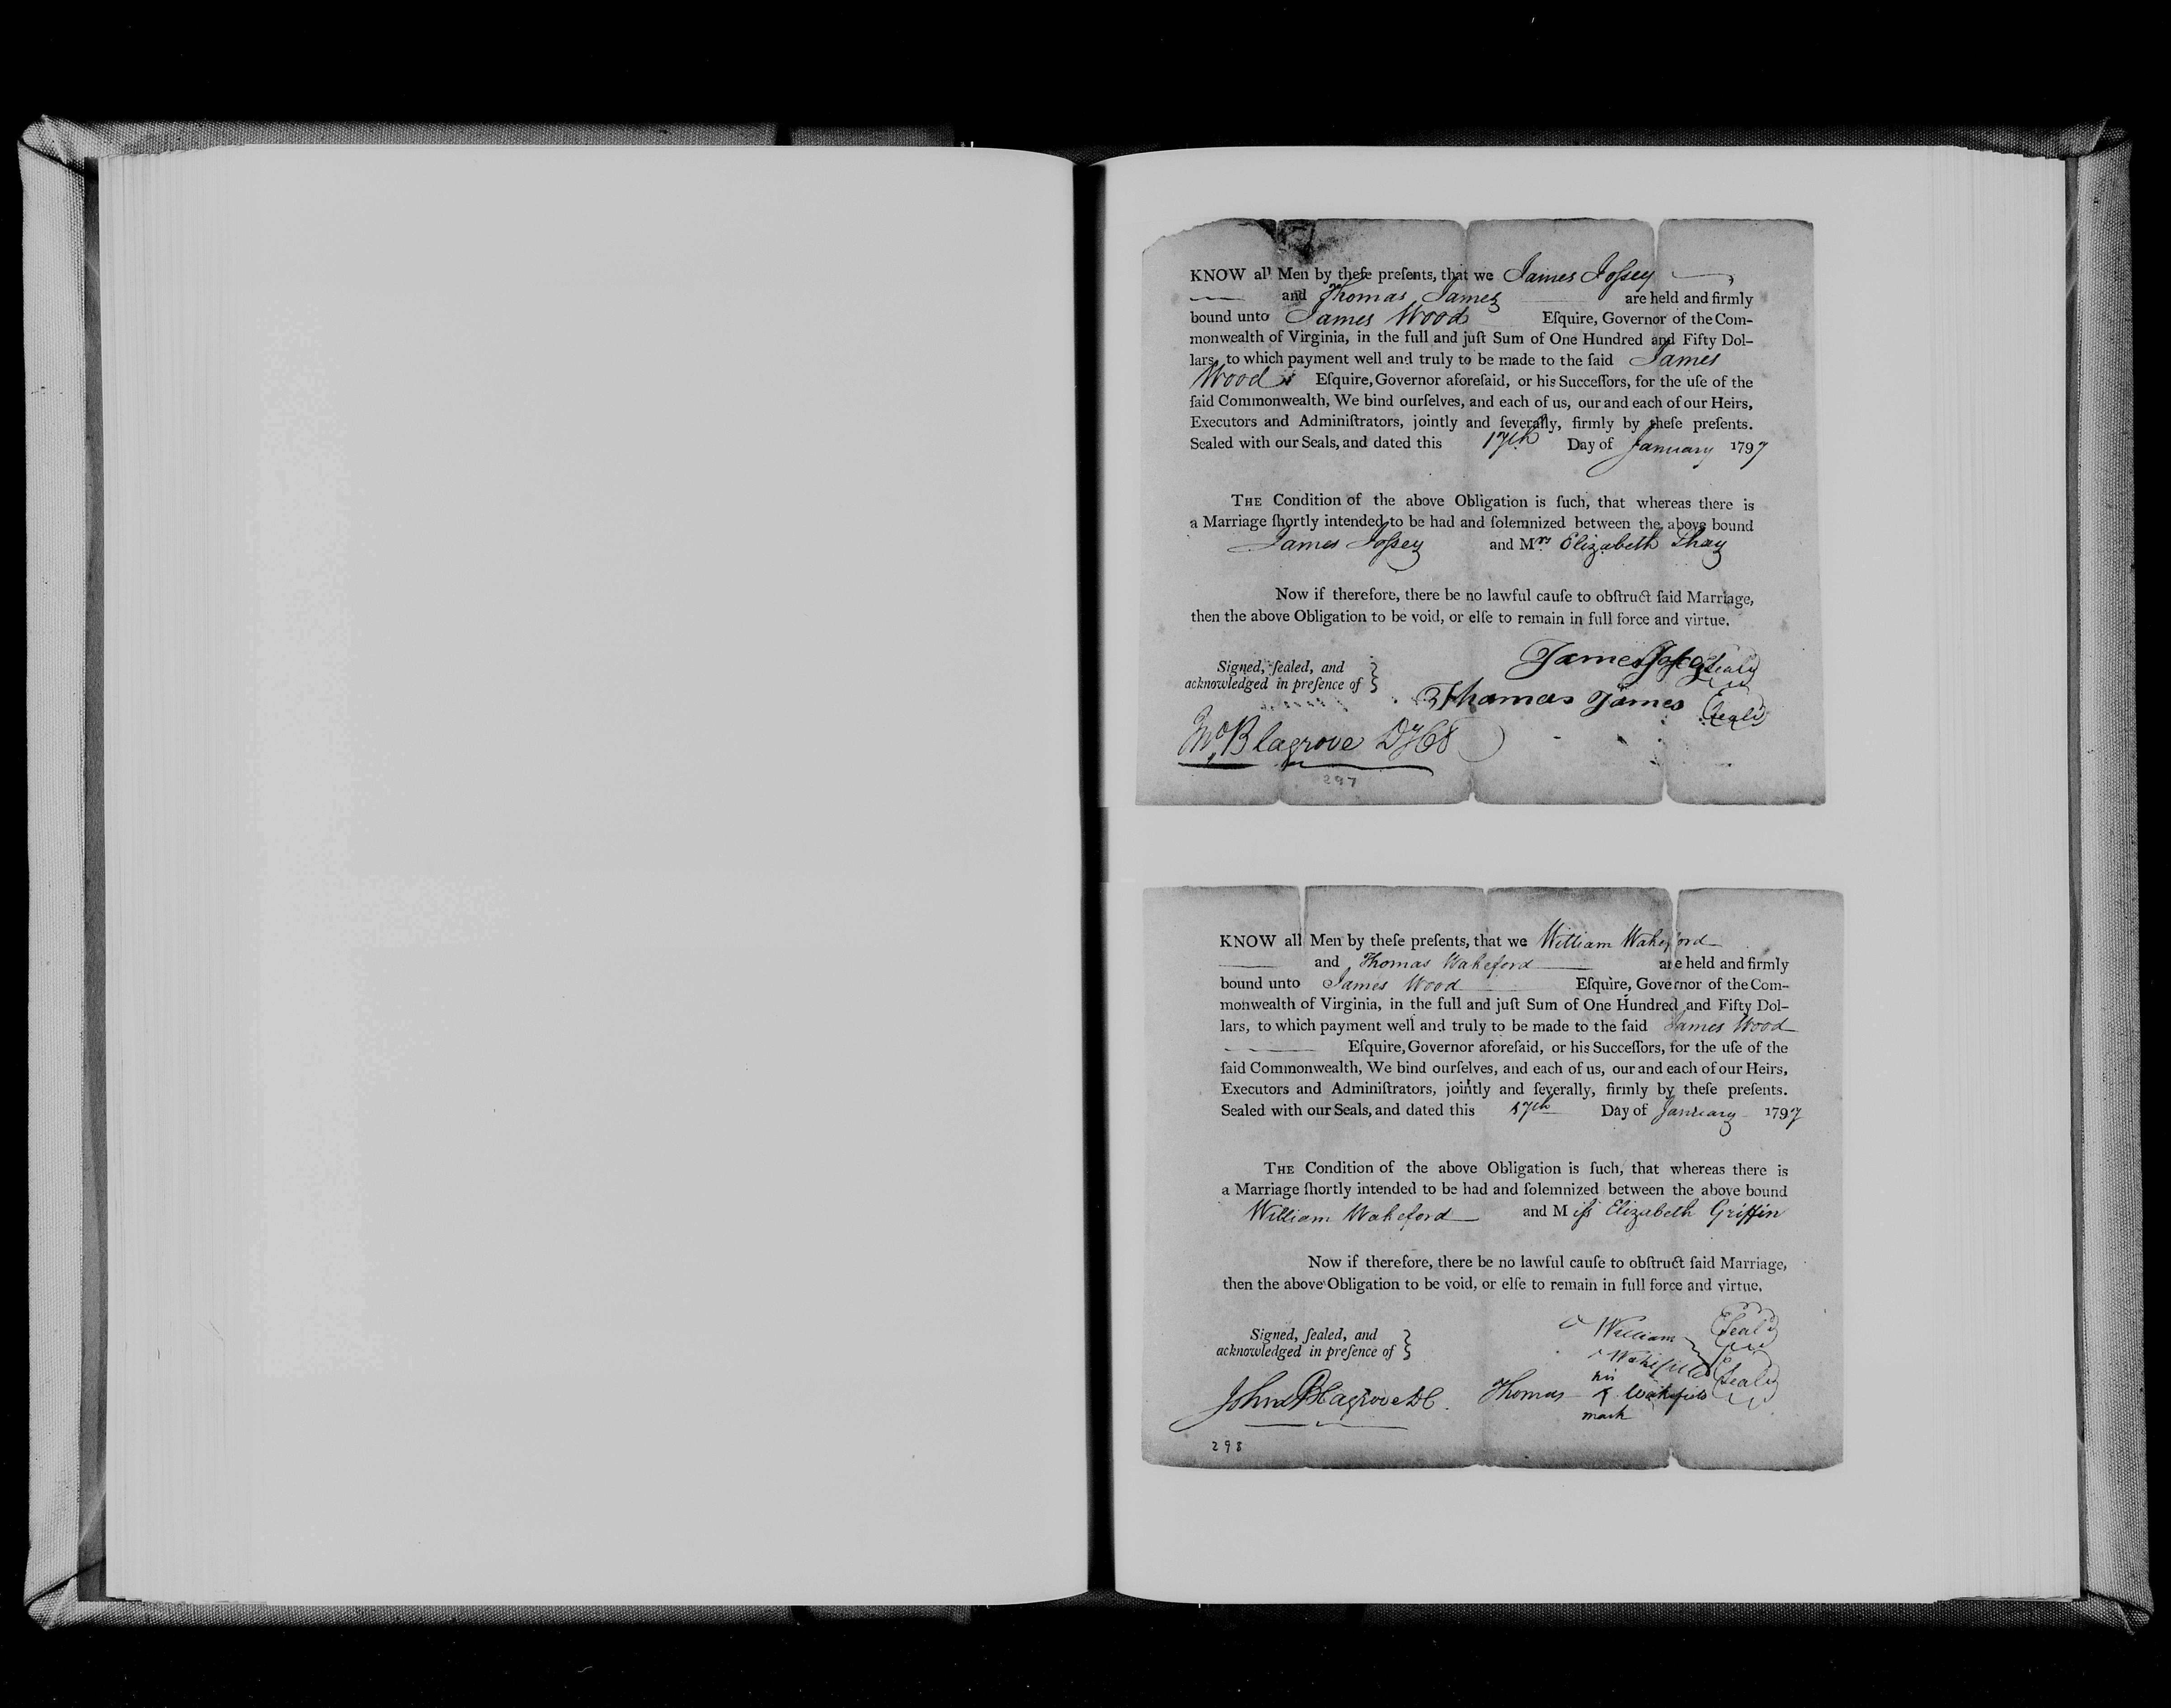 KNOW all Men by theſe preſents, that we James Joſsey
and Thomas James are held and firmly
bound unto James Wood Eſquire, Governor of the Com-
monwealth of Virginia, in the full and juſt Sum of One Hundred and Fifty Dol-
lars, to which payment well and truly to be made to the ſaid James
Wood Eſquire, Governor aforeſaid, or his Succeſſors, for the uſe of the
ſaid Commonwealth, We bind ourſelves, and each of us, our and each of our Heirs,
Executors and Adminiſtrators, jointly and ſeverally, firmly by theſe preſents.
Sealed with our Seals, and dated this 17th Day of January 1797
THE Condition of the above Obligation is ſuch, that whereas there is
a Marriage ſhortly intended to be had and ſolemnized between the above bound
James Joſsey and Mrs Elizabeth Thay
Now if therefore, there be no lawful cauſe to obſtruct ſaid Marriage,
then the above Obligation to be void, or elſe to remain in full force and virtue.
Signed, ſealed, and
acknowledged in preſence of
James Joſsey Seal'd
Thomas James Seal'd
Jno. Blagrove
297
KNOW all Men by theſe preſents, that we William Wakeford
and Thomas Wakeford are held and firmly
bound unto James Wood Eſquire, Governor of the Com-
monwealth of Virginia, in the full and juſt Sum of One Hundred and Fifty Dol-
lars, to which payment well and truly to be made to the ſaid James Wood
Eſquire, Governor aforeſaid, or his Succeſſors, for the uſe of the
ſaid Commonwealth, We bind ourſelves, and each of us, our and each of our Heirs,
Executors and Adminiſtrators, jointly and ſeverally, firmly by theſe preſents.
Sealed with our Seals, and dated this 17th Day of January 1797
THE Condition of the above Obligation is ſuch, that whereas there is
a Marriage ſhortly intended to be had and ſolemnized between the above bound
William Wakeford and Miſs Elizabeth Griffin
Now if therefore, there be no lawful cauſe to obſtruct ſaid Marriage,
then the above Obligation to be void, or elſe to remain in full force and virtue.
Signed, ſealed, and
acknowledged in preſence of
William Seal'd
Wakefield Seal'd
his
John Blagrove DC. Thomas Wakefield
mark
298